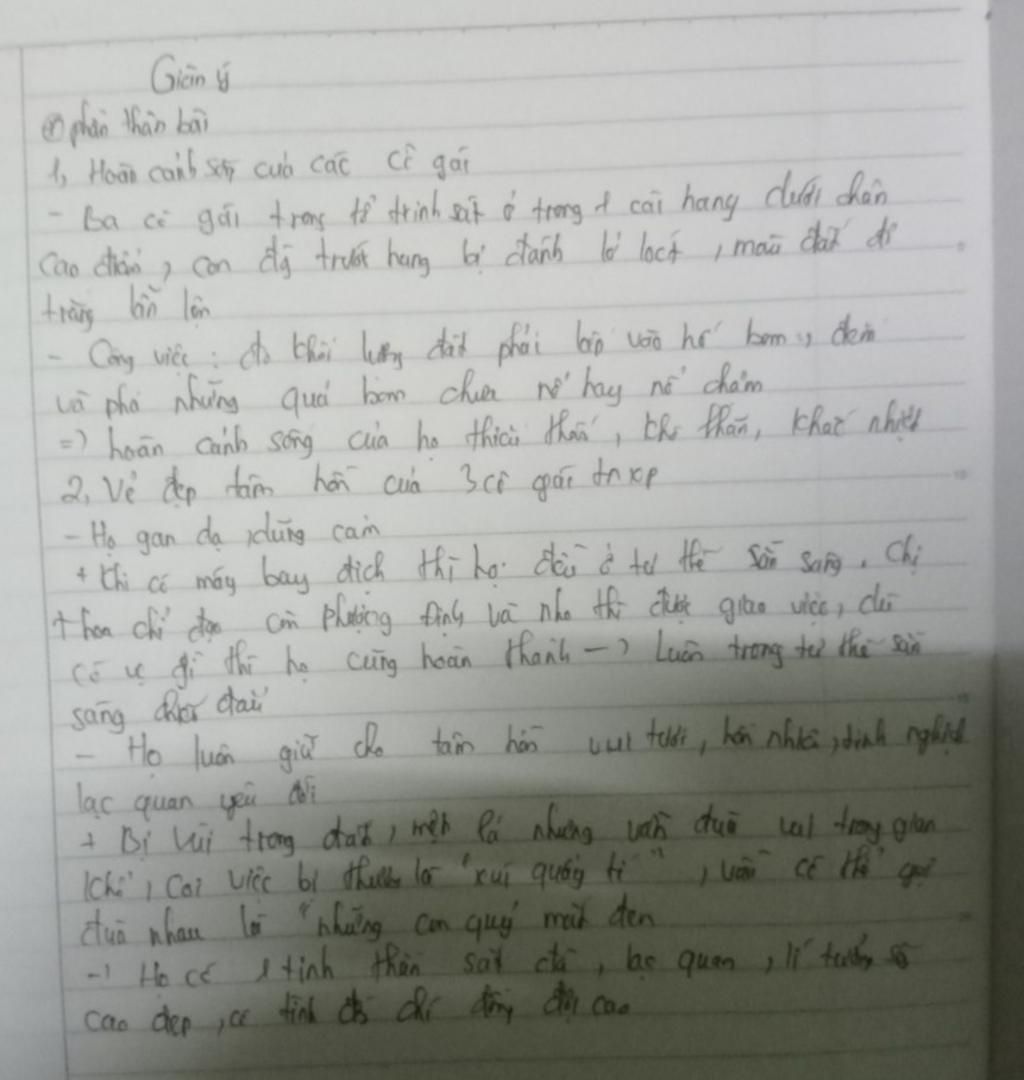 Giàn ý
phần thân bài
1, Hoàn cảnh sống của các cô gái
- Ba cô gái trong tổ trinh sát ở trong 1 cái hang dưới chân
cao điểm, con đg trước hang bị đánh lở loét, màu đất đỏ
trắng lẫn lộn
- Công việc: đo khối lượng đất phải lấp vào hố bom, đếm
và phá những quả bom chưa nổ hay nổ chậm
=) hoàn cảnh sống của họ thiếu thốn, khó khăn, khắc nhiệt
2, Vẻ đẹp tâm hồn của 3 cô gái tnxp
- Họ gan dạ, dũng cảm
+ Khi có máy bay địch thì họ đều ở tư thế sẵn sàng. Chị
thao chỉ đạo còn phương định và nho thì được giao việc, dù
có vc gì thì họ cũng hoàn thành -> Luôn trong tư thế sẵn
sàng
- Họ luôn giữ cho tâm hồn vui tươi, hồn nhiên, tinh nghịch
lạc quan yêu đời
+ Bị vùi trong đất, mệt lả nhưng vẫn đùa vui trong gian
khó, coi việc bị thương là " ", vẫn có thể gọi
đùa nhau là "những con quỷ mắt đen
-> Họ có 1 tinh thần sắt đá, lạc quan, lí tưởng
cao đẹp, có tình đồng đội cao